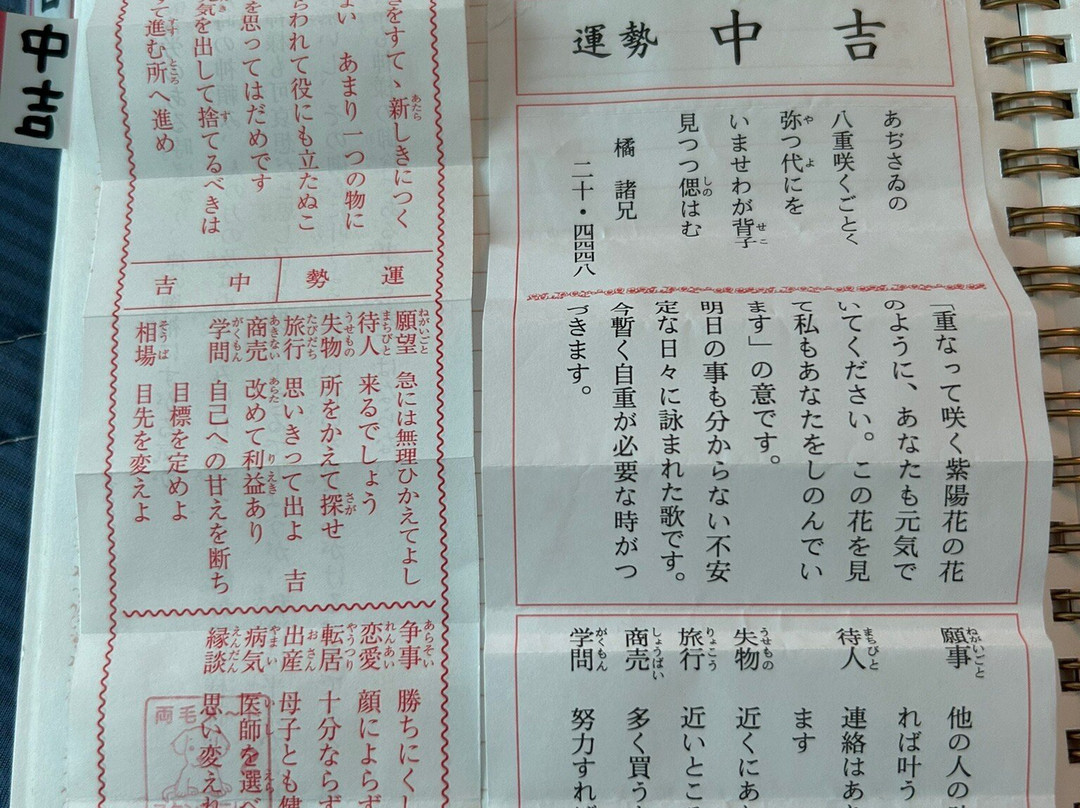 中吉
運勢 中吉
あぢさゐの
八重咲くごとく
弥つ代にを
いませわが背子
見つつ偲はむ
橘 諸兄
二十・四四四八
「重なって咲く紫陽花の花
のように、あなたも元気で
いてください。この花を見
て私もあなたをしのんでい
ます」の意です。
明日の事も分からない不安
定な日々に詠まれた歌です。
今暫く自重が必要な時がつ
づきます。
願事 他の人の
れば叶う
待人 連絡はあ
ます
失物 近くにあ
旅行 近いところ
商売 多く買う
学問 努力すれば
をすてゝ新しきにつく
よい あまり一つの物に
らわれて役にも立たぬこ
を思ってはだめです
気を出して捨てるべきは
て進む所へ進め
運勢 中吉
願望 急には無理ひかえてよし
待人 来るでしょう
失物 所をかえて探せ
旅行 思いきって出よ 吉
商売 改めて利益あり
学問 自己への甘えを断ち
目標を定めよ
相場 目先を変えよ
争事 勝ちにくし
恋愛 顔によらず
転居 十分ならず
出産 母子とも健
病気 医師を選べ
縁談 思い変えれ
両毛